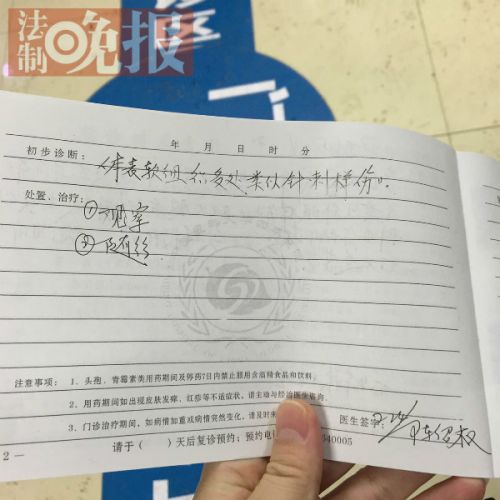 法制晚报
年 月 日 时 分
初步诊断: 体表软组织多处类似针刺样伤。
处置、治疗:
①观察
②随诊
注意事项: 1、头孢、青霉素类用药期间及停药7日内禁止服用含酒精食品和饮料。
2、用药期间如出现皮肤发痒、红疹等不适症状,请主动与经治医生
3、门诊治疗期间,如病情加重或病情突然变化,请及时来
医生签字:
请于( )天后复诊预约;预约电
40005
2 —